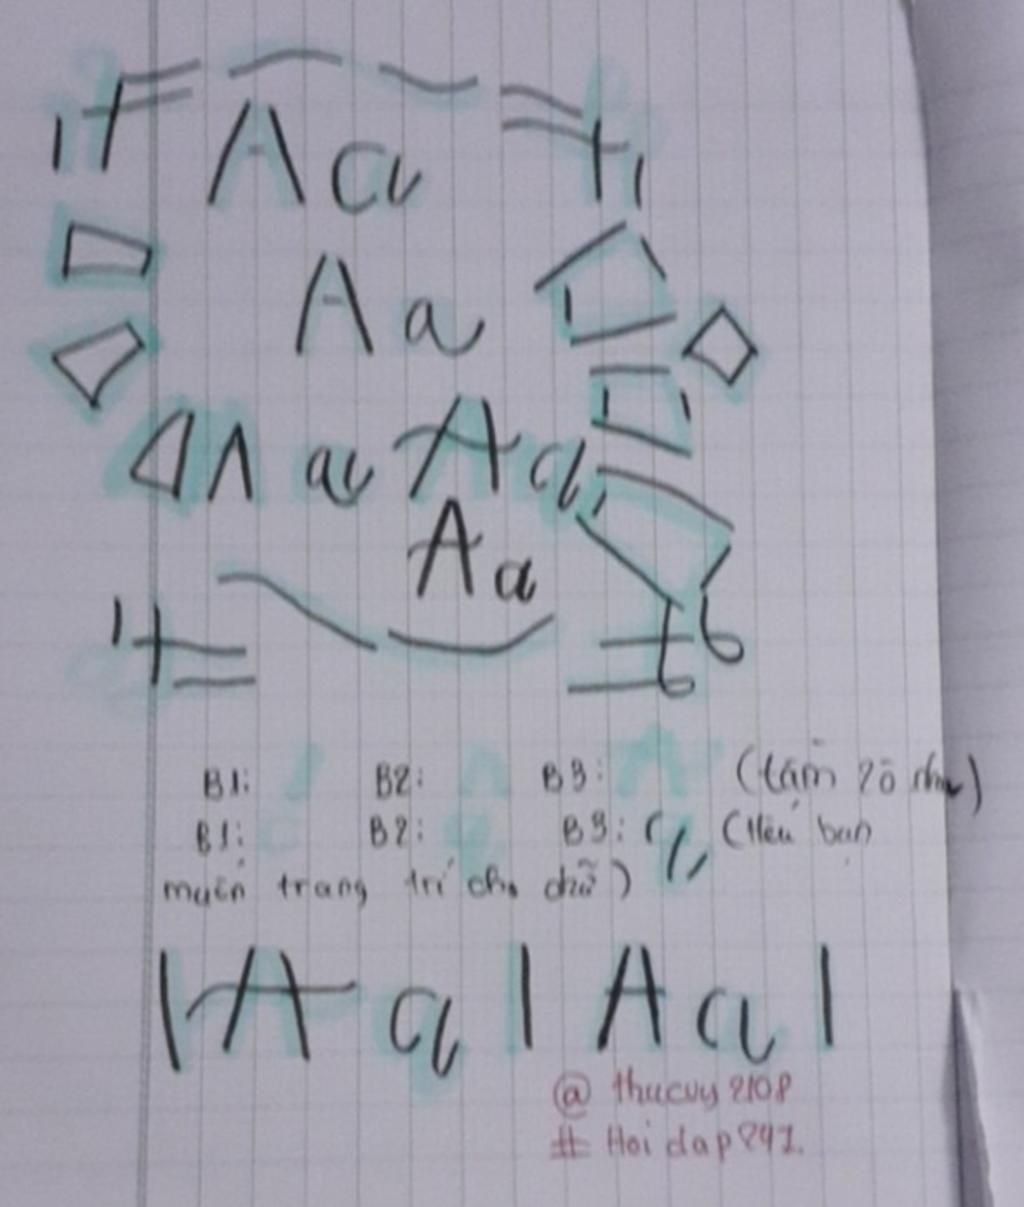 Aa
Aa
Aa Aa
Aa
B1: B2: B3:
B1: B2: B3: (Nếu bạn
muốn trang trí cho chữ)
Aa | Aa |
@ thucuy2108
# Hoidap247.